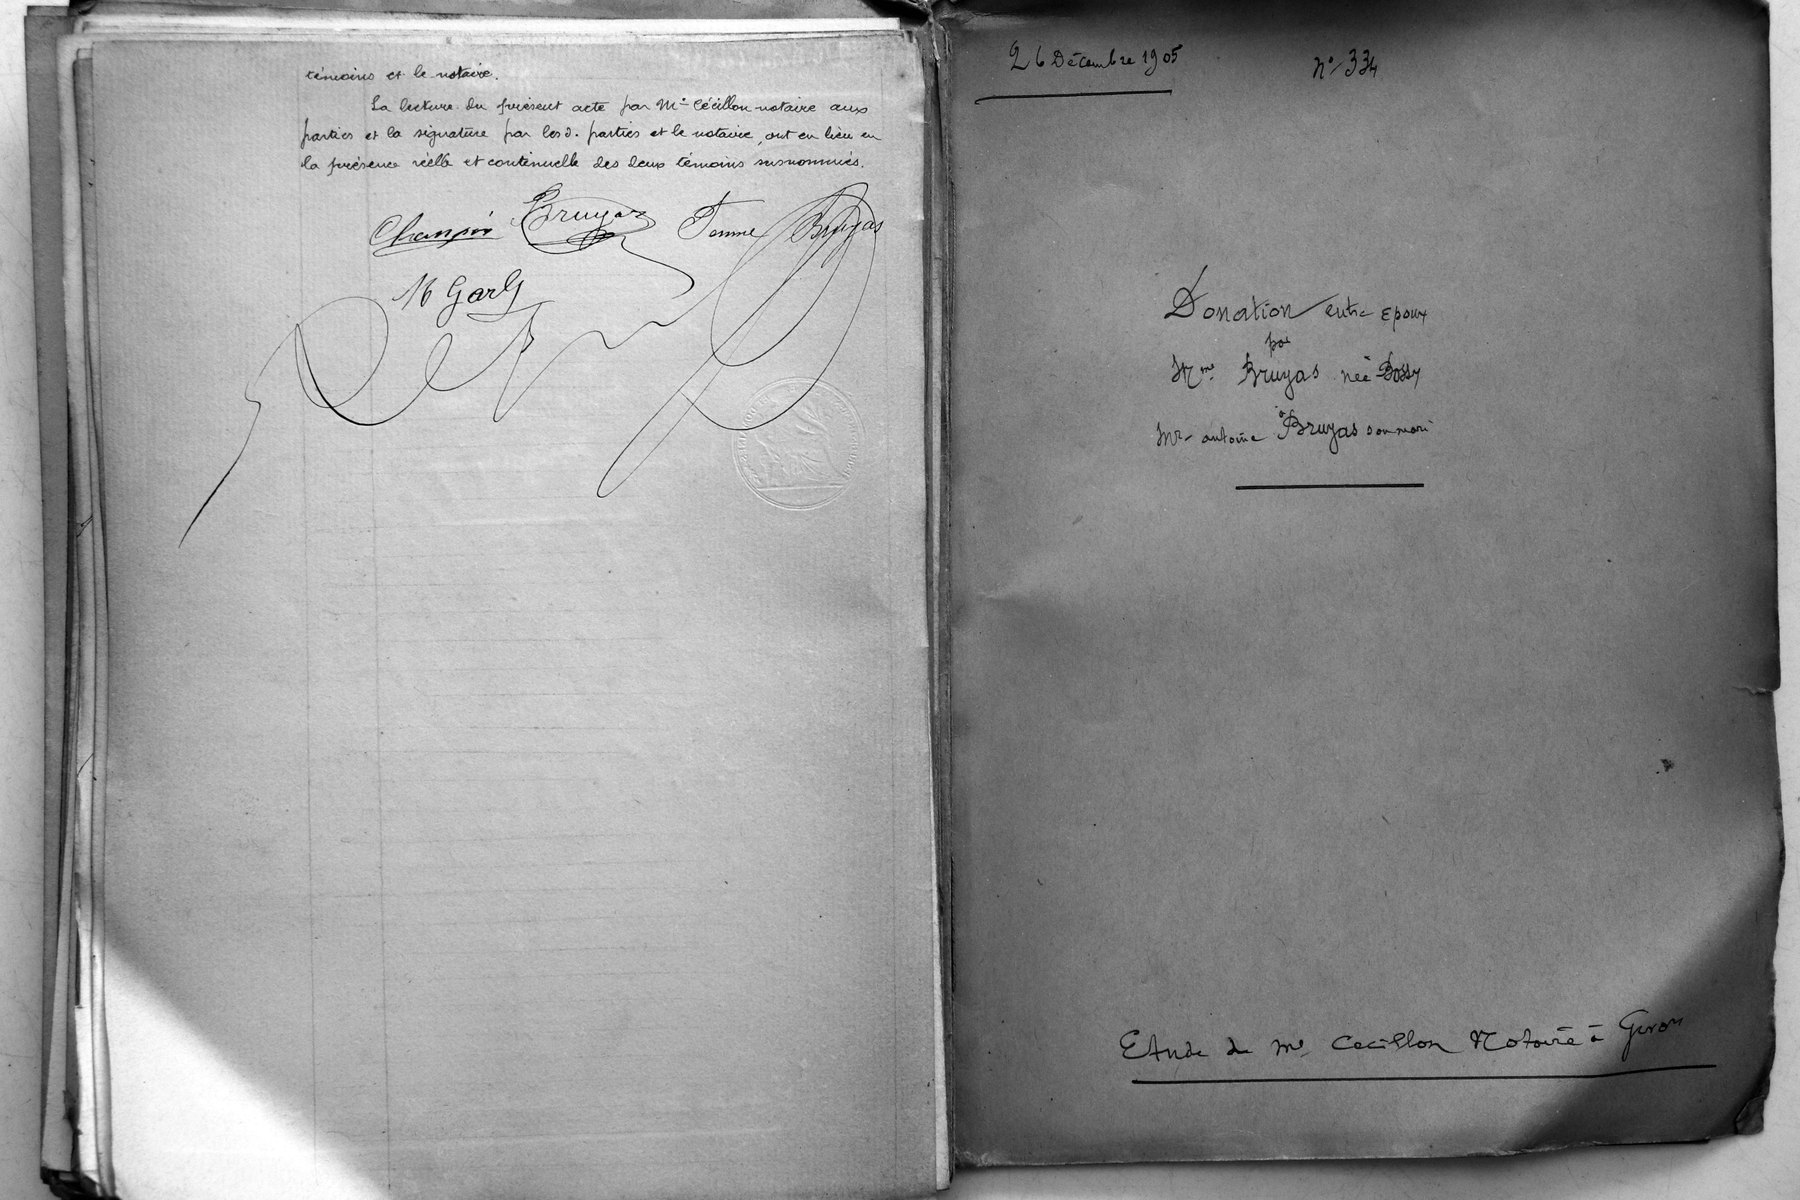 témoins et le notaire.
La lecture du présent acte par Me Cécillon notaire aux
parties et la signature par lesd. parties et le notaire, ont eu lieu en
la présence réelle et continuelle des deux témoins susnommés.
Bruyas Femme Bruyas
26 Décembre 1905
No 334
Donation entre Epoux
par
Mme Bruyas née Bossy
à
Mr antoine Bruyas son mari
Etude de Me Cecillon Notaire à